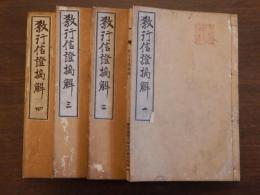 教行信證摘解 一
教行信證摘解 二
教行信證摘解 三
教行信證摘解 四